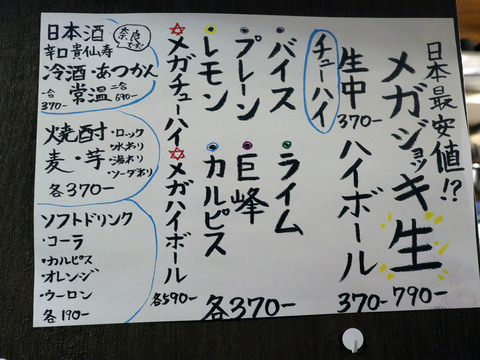 日本最安値!?
メガジョッキ生
790-
生中
370-
ハイボール
370-
チューハイ
バイス
ライム
プレーン
巨峰
レモン
カルピス
各370-
メガチューハイ
メガハイボール
各590-
日本酒
奈良です!
辛口貴仙寿
冷酒・あつかん
常温
一合
370-
二合
690-
焼酎
麦・芋
・ロック
・水わり
・湯わり
・ソーダわり
各370-
ソフトドリンク
・コーラ
・カルピス
・オレンジ
・ウーロン
各190-